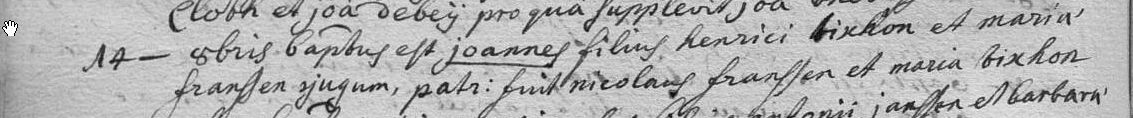 Clobh et joa debeÿ pro qua supplevit joa
14 — 8bris baptus est joannes filius henrici bixhon et maria
franssen cjugum, patr: fuit nicolaus franssen et maria bixhon
antonii janssen et barbara